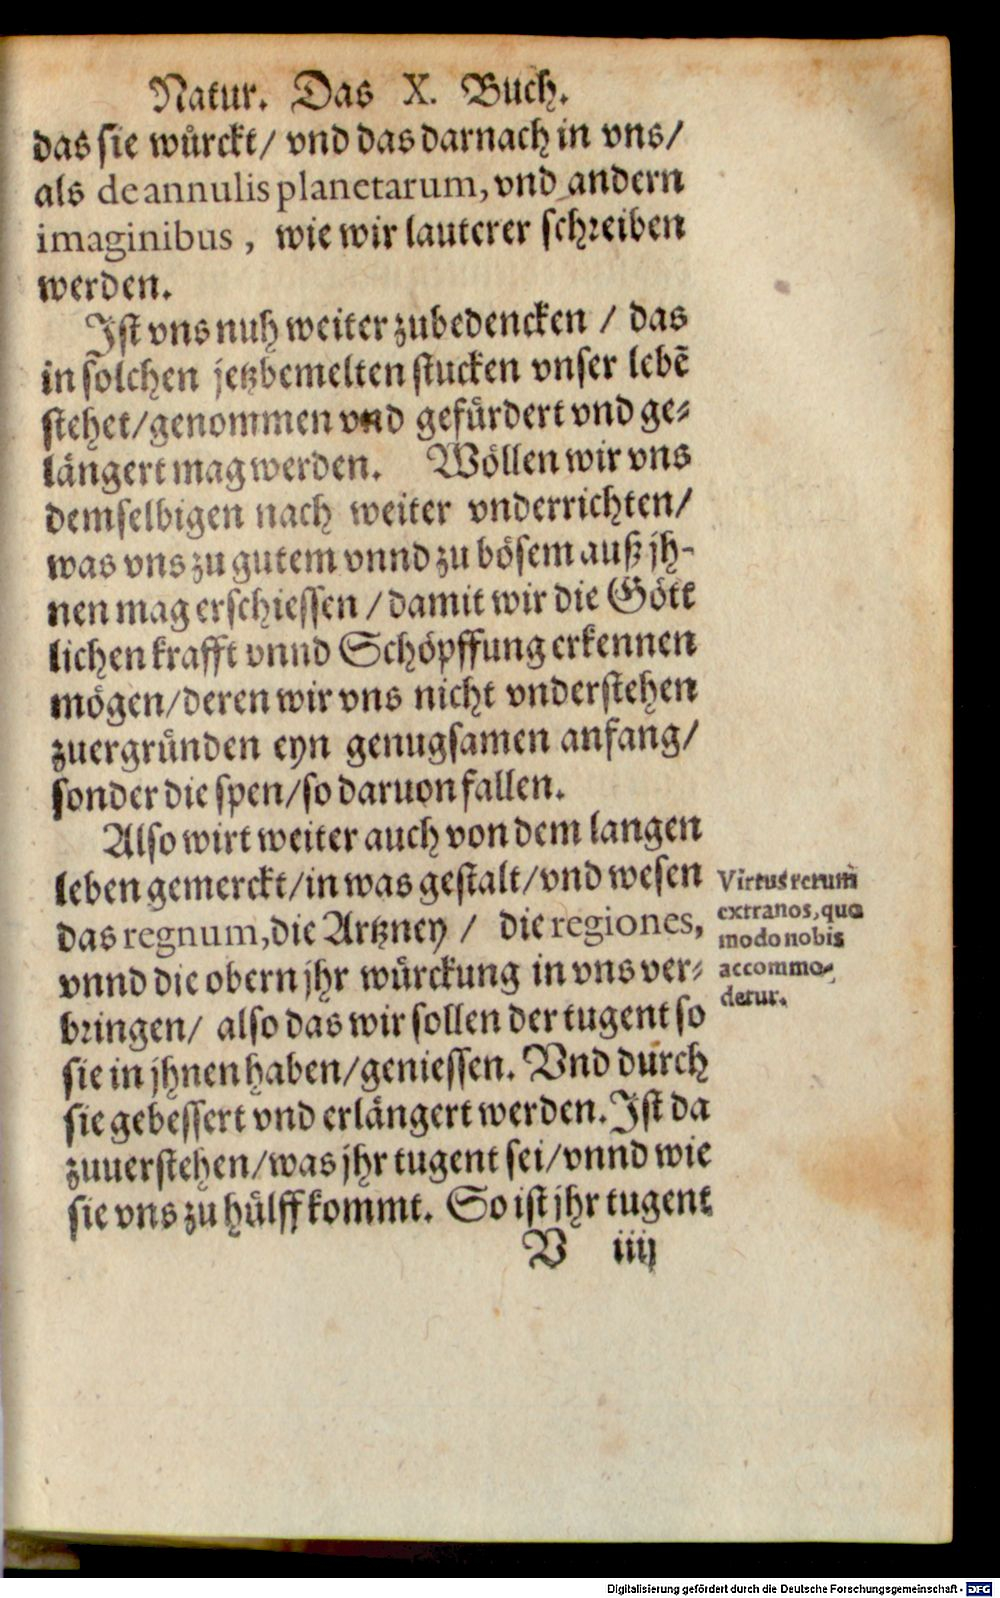 Natur. Das X. Buch.
das sie würckt/ vnd das darnach in vns/
als de annulis planetarum, vnd andern
imaginibus, wie wir lauterer schreiben
werden.
Ist vns nuh weiter zubedencken / das
in solchen jetzbemelten stucken vnser lebē
stehet/genommen vnd gefürdert vnd ge⸗
längert mag werden. Wöllen wir vns
demselbigen nach weiter vnderrichten/
was vns zu gutem vnnd zu bösem auß jh-
nen mag erschiessen / damit wir die Gött
lichen krafft vnnd Schöpffung erkennen
mögen/deren wir vns nicht vnderstehen
zuergründen eyn genugsamen anfang/
sonder die spen/so daruon fallen.
Also wirt weiter auch von dem langen
leben gemerckt/in was gestalt/vnd wesen
das regnum, die Artzney / die regiones,
vnnd die obern jhr würckung in vns ver⸗
bringen/ also das wir sollen der tugent so
sie in jhnen haben/geniessen. Vnd durch
sie gebessert vnd erlängert werden. Ist da
zuuerstehen/was jhr tugent sei/vnnd wie
sie vns zu hülff kommt. So ist jhr tugent
V iiij
Virtus rerum
extra nos, quo
modo nobis
accommo-
detur.
Digitalisierung gefördert durch die Deutsche Forschungsgemeinschaft - DFG